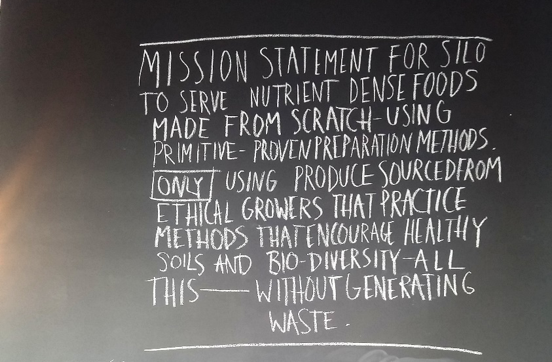 MISSION STATEMENT FOR SILO
TO SERVE NUTRIENT DENSE FOODS
MADE FROM SCRATCH-USING
PRIMITIVE-PROVEN PREPARATION METHODS.
ONLY USING PRODUCE SOURCED FROM
ETHICAL GROWERS THAT PRACTICE
METHODS THAT ENCOURAGE HEALTHY
SOILS AND BIO-DIVERSITY-ALL
THIS — WITHOUT GENERATING
WASTE.